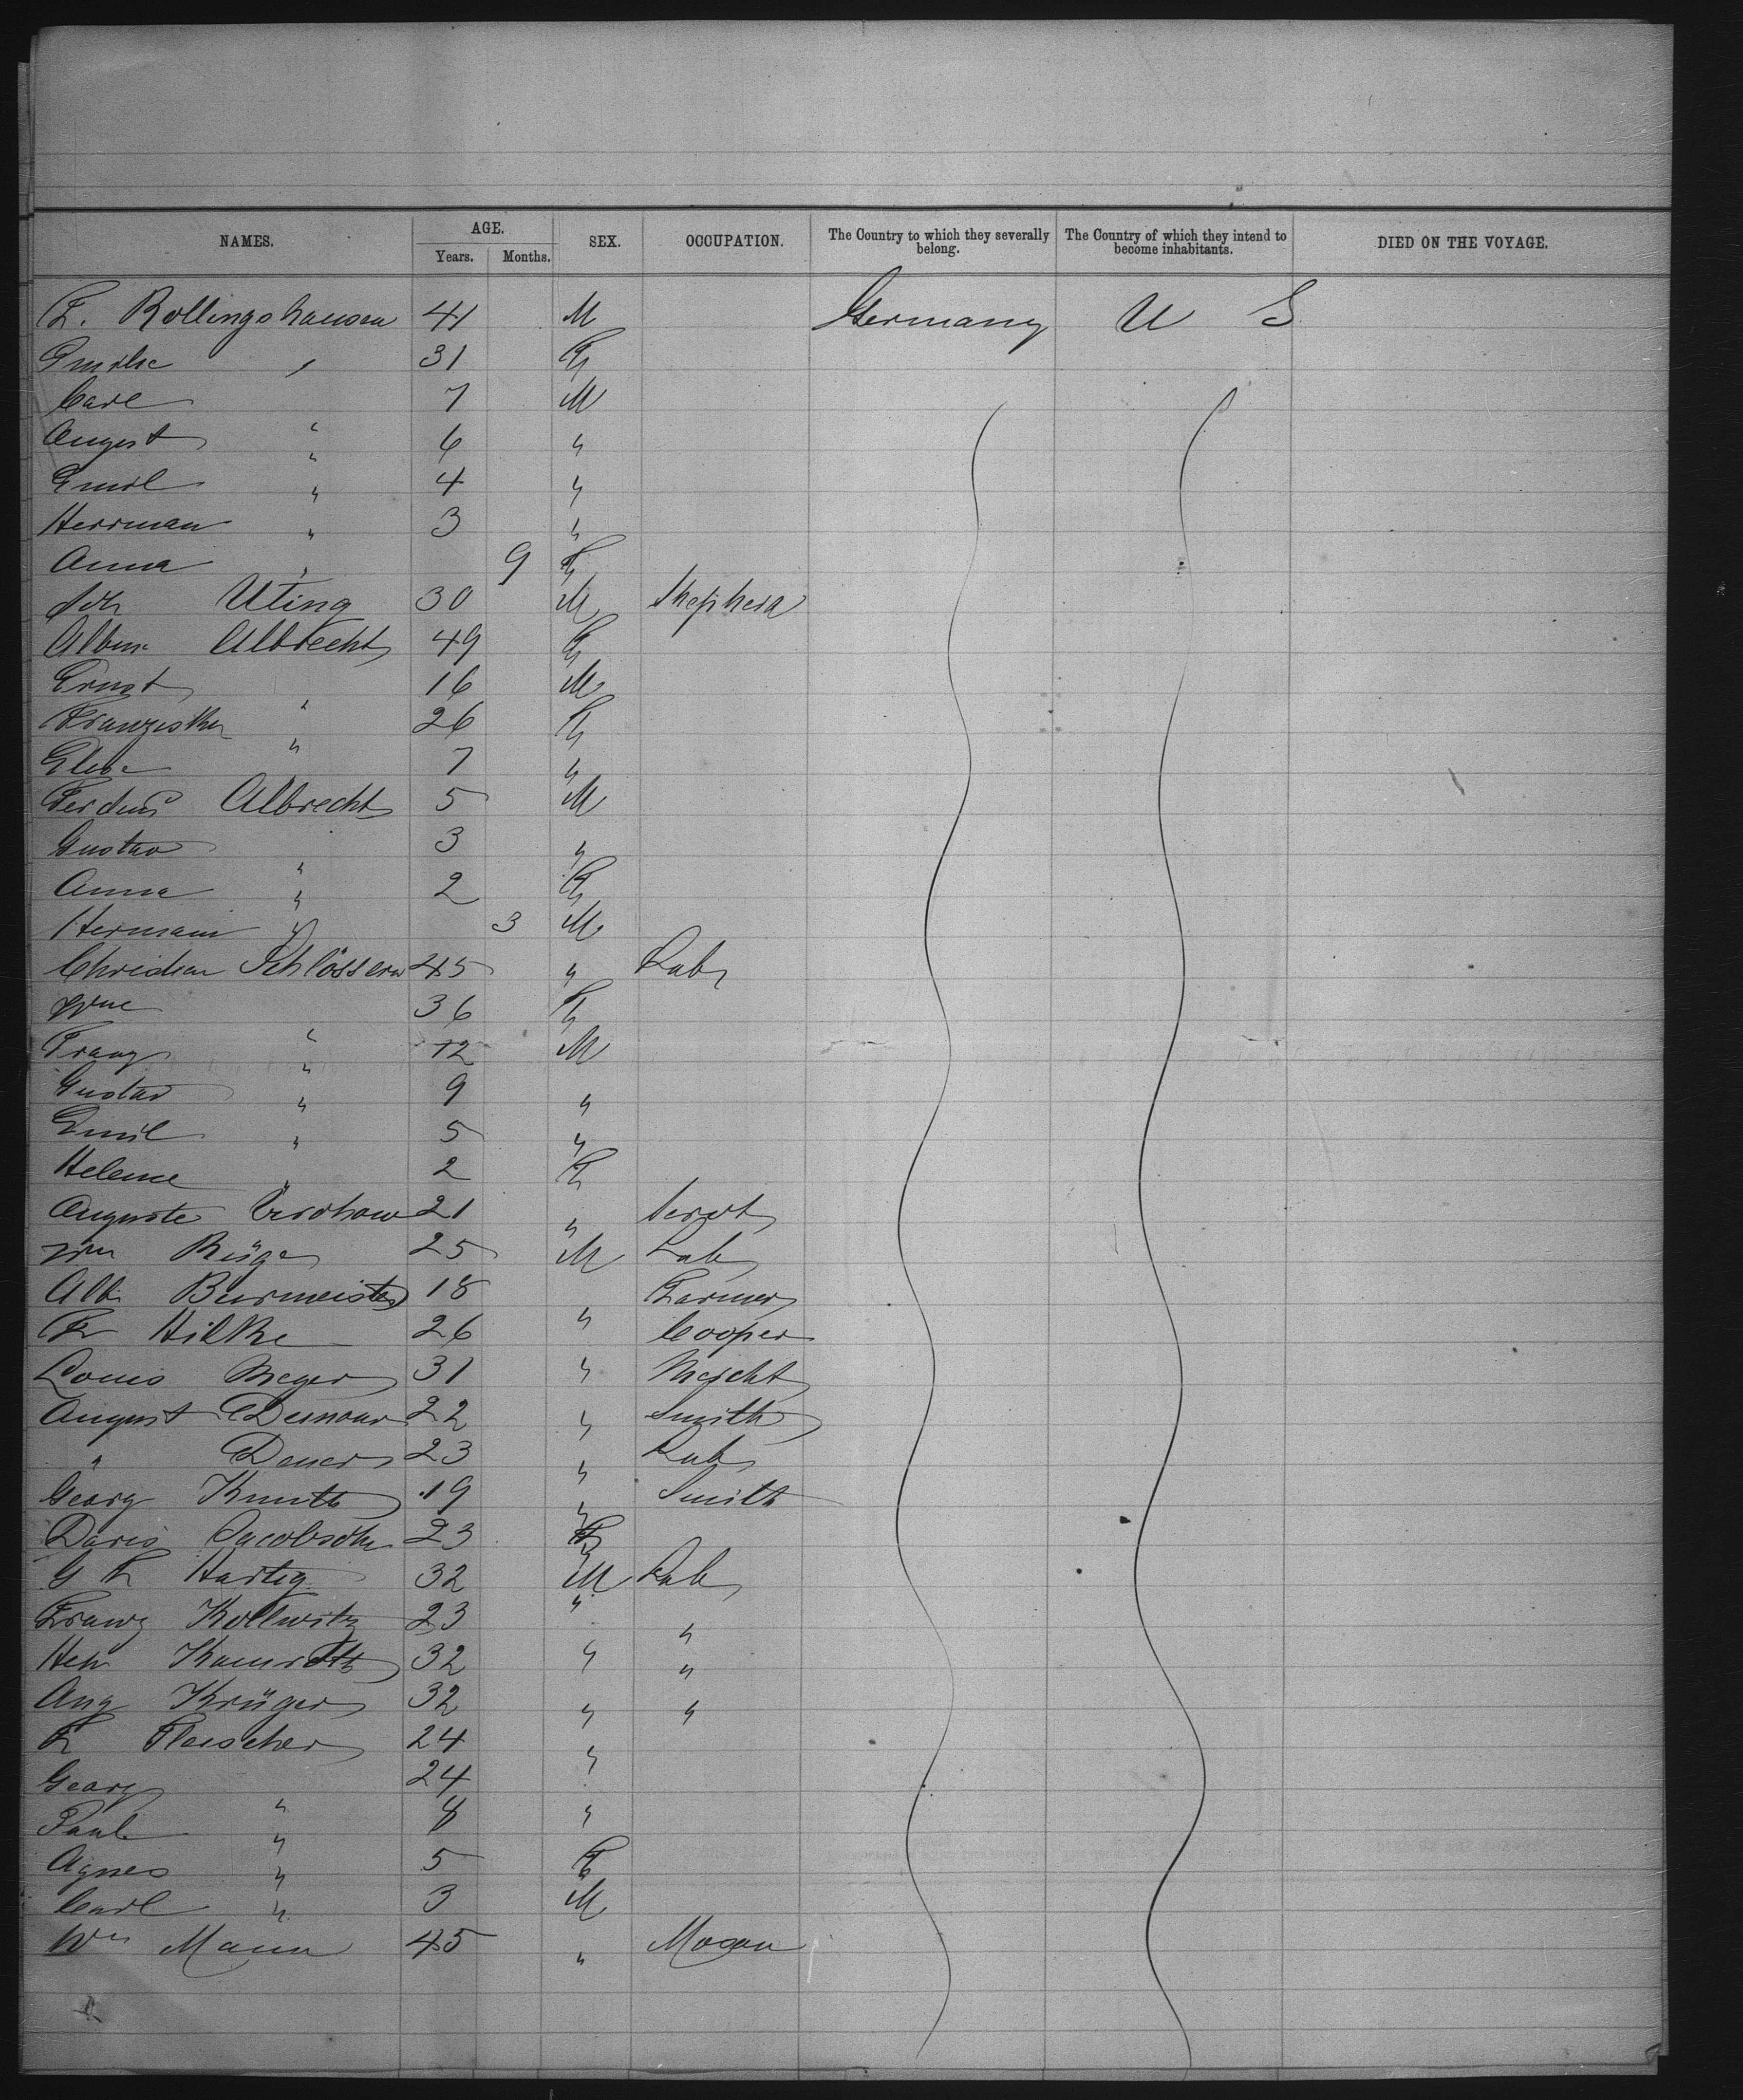 NAMES. AGE. SEX. OCCUPATION. The Country to which they severally belong. The Country of which they intend to become inhabitants. DIED ON THE VOYAGE.
Years. Months.
F. Rollingshausen 41 M Germany U S
Emilie " 31 F
Carl " 7 M
August " 6 "
Emil " 4 "
Herrman " 3 "
Anna " 9 F
Joh Uting 30 M Shepherd
Albine Albrecht 49 F
Ernst " 16 M
Franziska " 26 F
Elise 7 "
Ferdind Albrecht 5 M
Gustav " 3 "
Anna " 2 F
Hermann " 3 M
Christian Schlösser 45 " Lab
Wme " 36 F
Franz " 12 M
Gustav " 9 "
Emil " 5 "
Helene " 2 F
Auguste 21 " Servt
Wm Rüge 25 M Lab
Alb. Burmeister 18 " Farmer
Fr Hilke 26 " Cooper
Louis Meyer 31 " Mercht
August 22 " Smith
" 23 " Lab
Georg Knuth 19 " Smith
Doris Jacobsohn 23 F
G F Hartig 32 M Lab
Franz Kollwitz 23 " "
Heh Kamroth 32 " "
Aug Krüger 32 " "
F Fleischer 24 "
Georg " 24 "
Paul " 8
Agnes " 5 F
Carl " 3 M
Wm Mann 45 " Mason